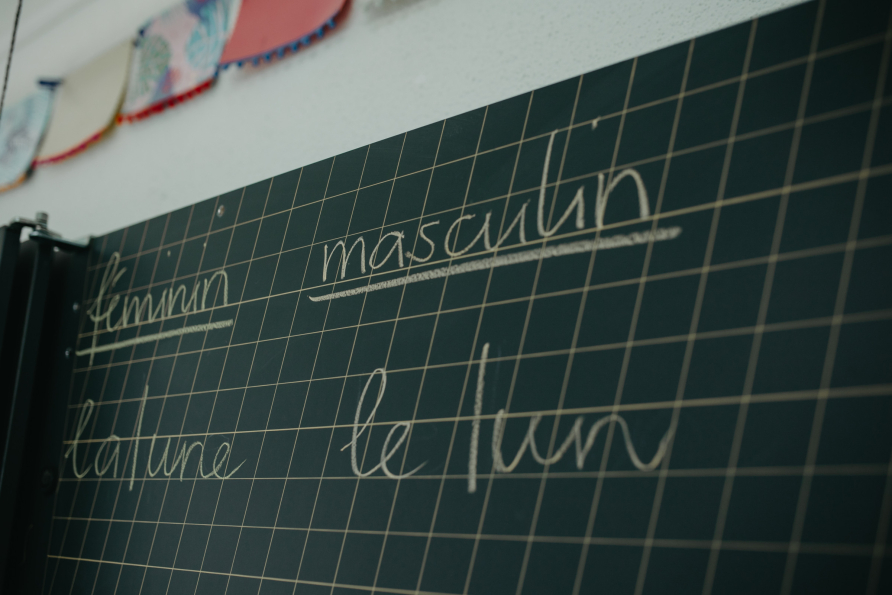 féminin masculin
la | une le | un